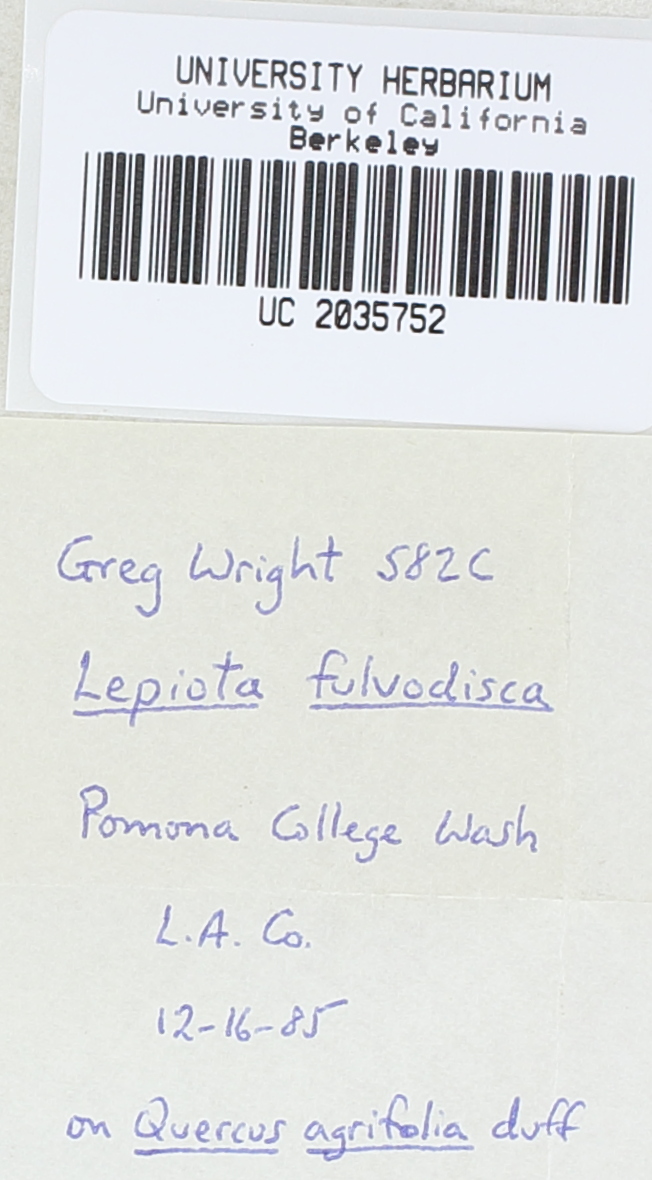 UNIVERSITY HERBARIUM
University of California
Berkeley
UC 2035752
Greg Wright 582C
Lepiota fulvodisca
Pomona College Wash
L.A. Co.
12-16-85
on Quercus agrifolia duff